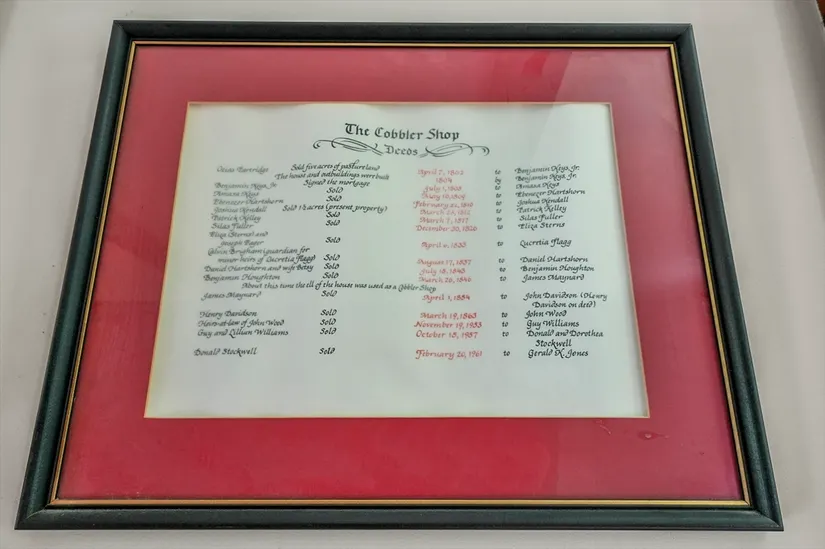 The Cobbler Shop
Deeds
Partridge Sold five acres of pasture land April 7, 1803 to Benjamin Keys, Jr.
The house and outbuildings were built 1804 by Benjamin Keys, Jr.
Benjamin Keys, Jr. Signed the mortgage July 1, to Amasa Keys
Amasa Keys Sold May 19, to Ebenezer Hartshorn
Ebenezer Hartshorn Sold February to Joshua Kendall
Joshua Kendall Sold 1/2 acres (present property) March to Patrick Kelley
Patrick Kelley Sold March 7, 1817 to Silas Fuller
Silas Fuller Sold December 20, to Eliza Sterns
Eliza Sterns and
Joseph Sold April 6, to Lucretia Flagg
Calvin Brigham (guardian for
minor heirs of Lucretia Flagg) Sold August 17, 1837 to Daniel Hartshorn
Daniel Hartshorn and wife Betsy Sold July 18, 1843 to Benjamin Houghton
Benjamin Houghton Sold March 28, 1846 to James Maynard
About this time the ell of the house was used as a Cobbler Shop
James Maynard Sold April 1, 1854 to John Davidson (Henry
Davidson on deed)
Henry Davidson Sold March 19, 1863 to John Wood
Heirs-at-law of John Wood Sold November 19, 1933 to Guy Williams
Guy and Lillian Williams Sold October 15, 1957 to Donald and Dorothea
Stockwell
Donald Stockwell Sold February 20, 1961 to Gerald K. Jones